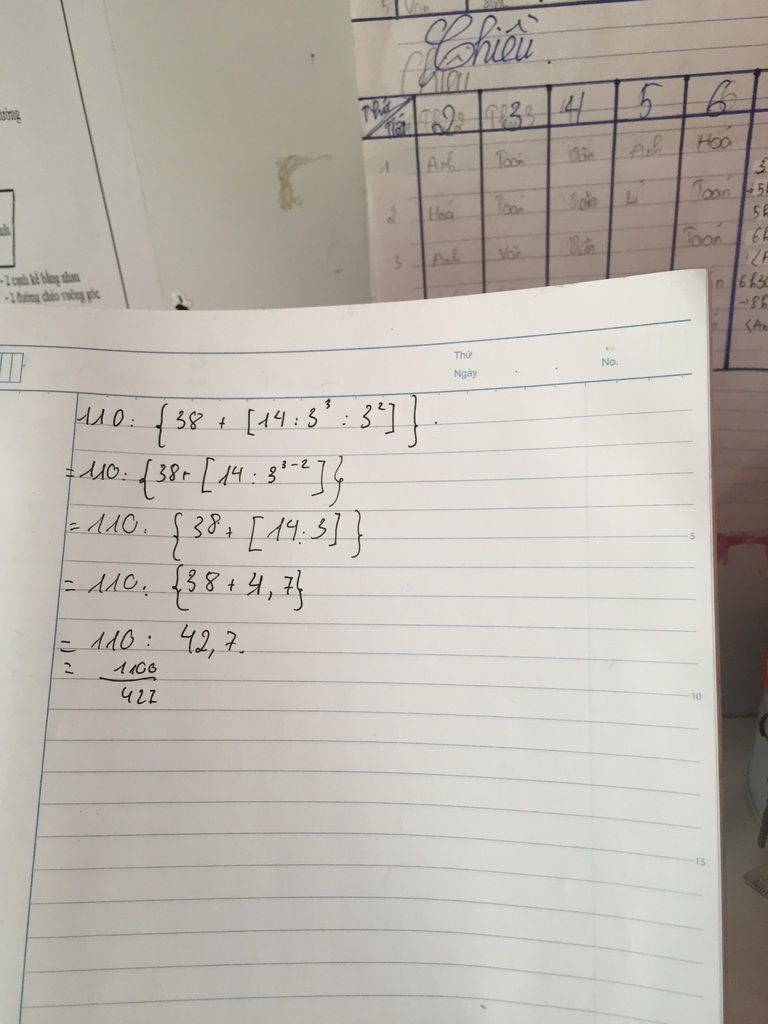 Chiều.
Thứ Tiết 2 3 4 5 6
1 Anh Toán Văn Anh Hoá
2 Hoá Toán Văn Lí Toán
3 Anh Văn Văn Toán
- 2 cạnh kề bằng nhau
- 2 đường chéo vuông góc
Thứ
Ngày
No.
110: {38 + [14 : 3³ : 3²]}.
= 110: {38+ [14 : 3³⁻²]}
= 110: {38+ [14:3]}
= 110: {38 + 4,7}
= 110 : 42,7.
= 1100
427
5
10
15